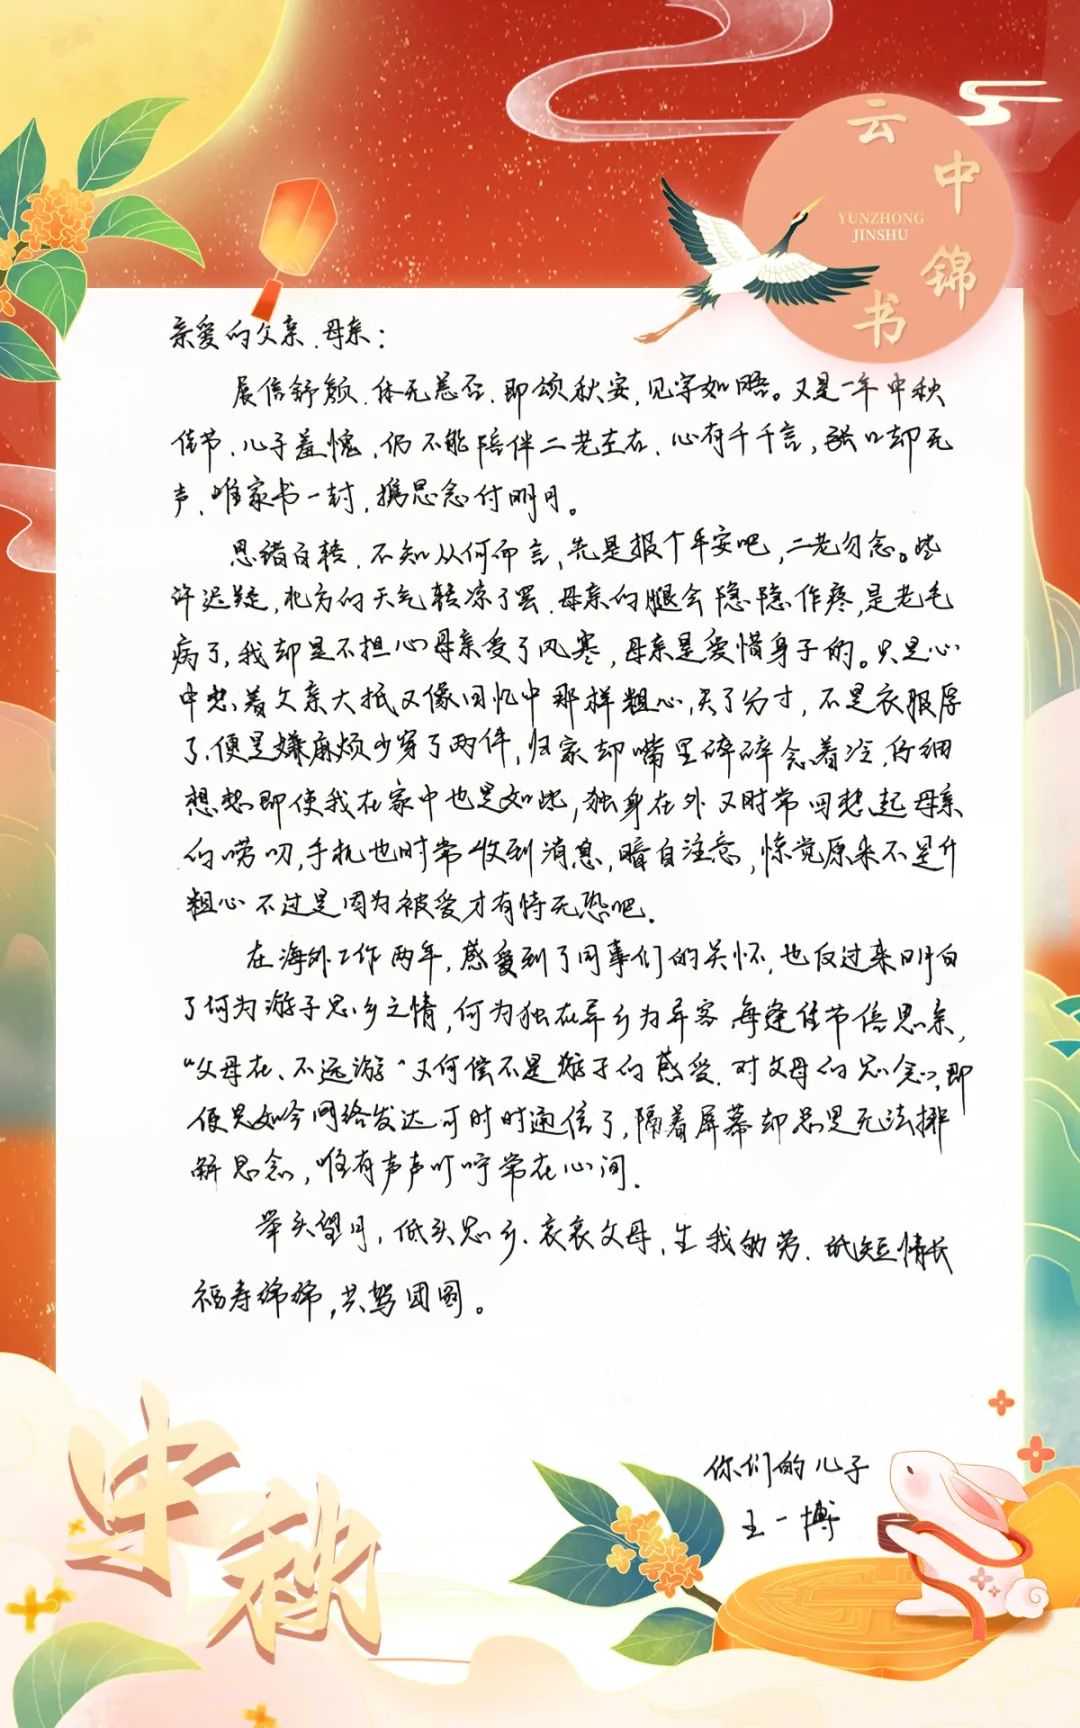 云中锦书
YUNZHONG
JINSHU
亲爱的父亲、母亲：
展信舒颜，体无恙否，即颂秋安，见字如晤。又是一年中秋
佳节，儿子羞愧，仍不能陪伴二老左右，心有千千言，张口却无
声，唯家书一封，携思念付明月。
思绪百转，不知从何而言，先是报个平安吧，二老勿念。些
许迟疑，北方的天气转凉了罢，母亲的腿会隐隐作疼，是老毛
病了，我却是不担心母亲受了风寒，母亲是爱惜身子的。只是心
中想着父亲大抵又像回忆中那样粗心，失了分寸，不是衣服厚
了，便是嫌麻烦少穿了两件，归家却嘴里碎碎念着冷，仔细
想想即使我在家中也是如此，独身在外又时常回想起母亲
的唠叨，手机也时常收到消息，暗自注意，惊觉原来不是
粗心不过是因为被爱才有恃无恐吧。
在海外工作两年，感受到了同事们的关怀，也反过来明白
了何为游子思乡之情，何为独在异乡为异客，每逢佳节倍思亲，
“父母在、不远游”又何偿不是游子的感受，对父母的思念，即
便是如今网络发达可时时通信了，隔着屏幕却总是无法排
解思念，唯有声声叮咛常在心间。
举头望月，低头思乡，哀哀父母，生我劬劳，纸短情长
福寿绵绵，共盼团圆。
你们的儿子
王一搏
中秋